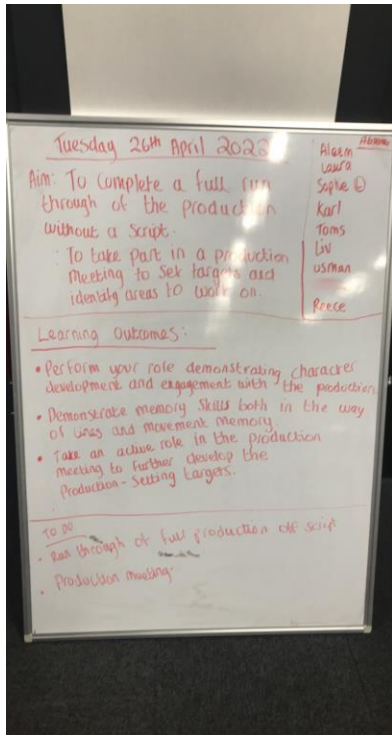 Tuesday 26th April 2022
Aim: To complete a full run
through of the production
without a script.
: To take part in a production
meeting to set targets and
identify areas to work on.
Aleem
Laura
Sophie L
Karl
Toms
Liv
Usman
Reece
Learning Outcomes:
• Perform your role demonstrating character
development and engagement with the production
• Demonstrate memory skills both in the way
of lines and movement memory
• Take an active role in the production
meeting to further develop the
Production - Setting targets.
TO DO
• Run through of full production off script
• Production meeting.